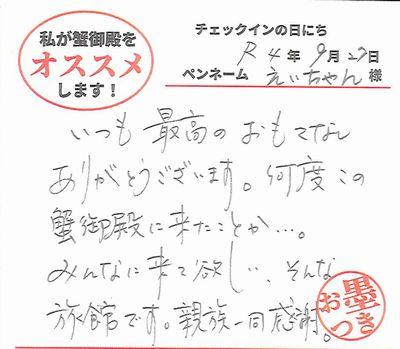 私が蟹御殿を
オススメ
します!
チェックインの日にち
R4年9月27日
ペンネーム えいちゃん 様
いつも最高のおもてなし
ありがとうございます。何度この
蟹御殿に来たことか…。
みんなに来て欲しい、そんな
旅館です。親族一同感謝。
お墨つき